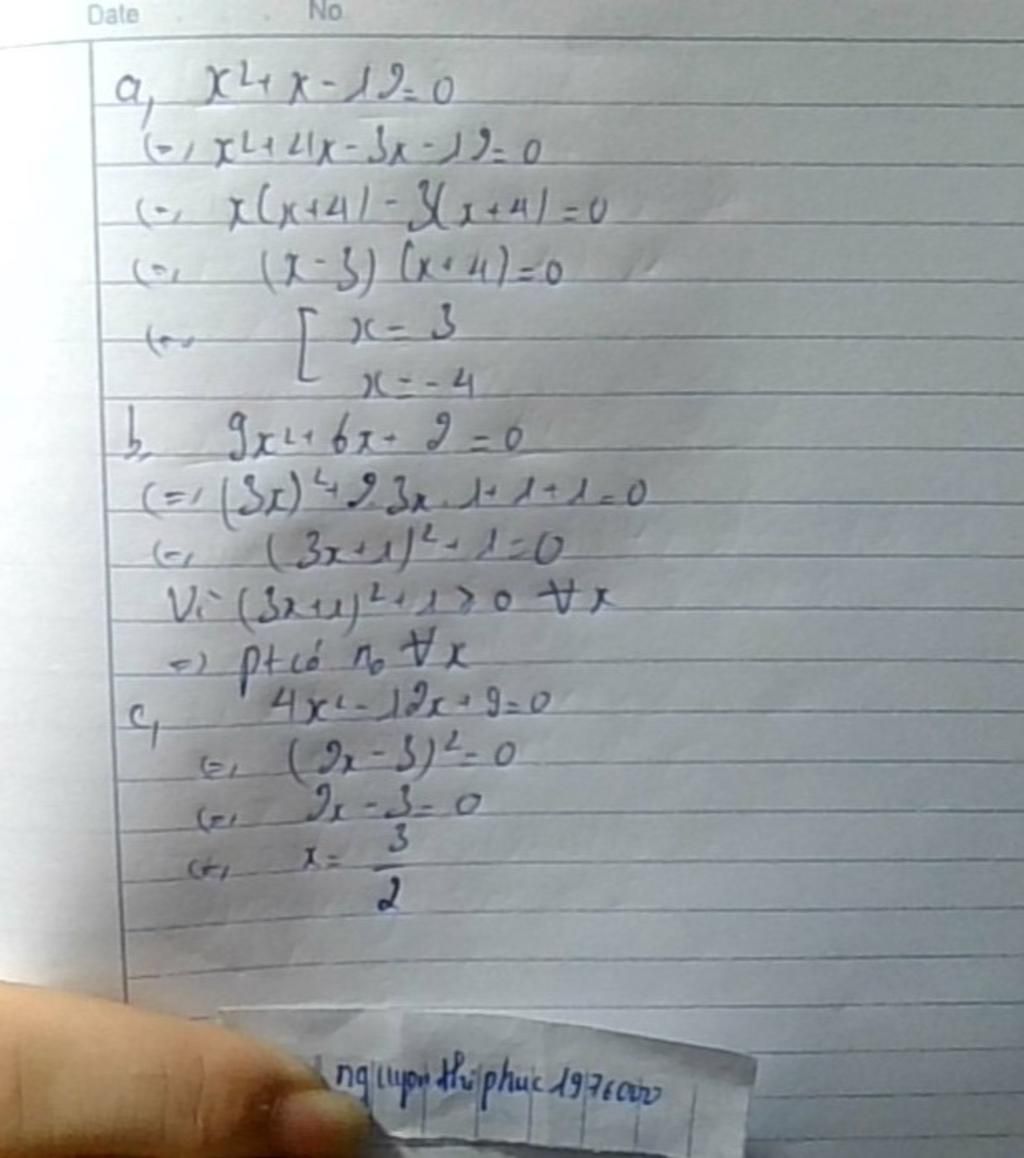 Date No
a, x²+x-12=0
(=) x²+4x-3x-12=0
(=) x(x+4)-3(x+4)=0
(=) (x-3)(x+4)=0
(=) [ x=3
x=-4
b, 9x²+6x+2=0
(=) (3x)²+2.3x.1+1+1=0
(=) (3x+1)²+1=0
Vì (3x+1)²+1>0 ∀x
=) pt có n₀ ∀x
c, 4x²-12x+9=0
(=) (2x-3)²=0
(=) 2x-3=0
(=) x= 3
2
nguyen thi phuc 1976000